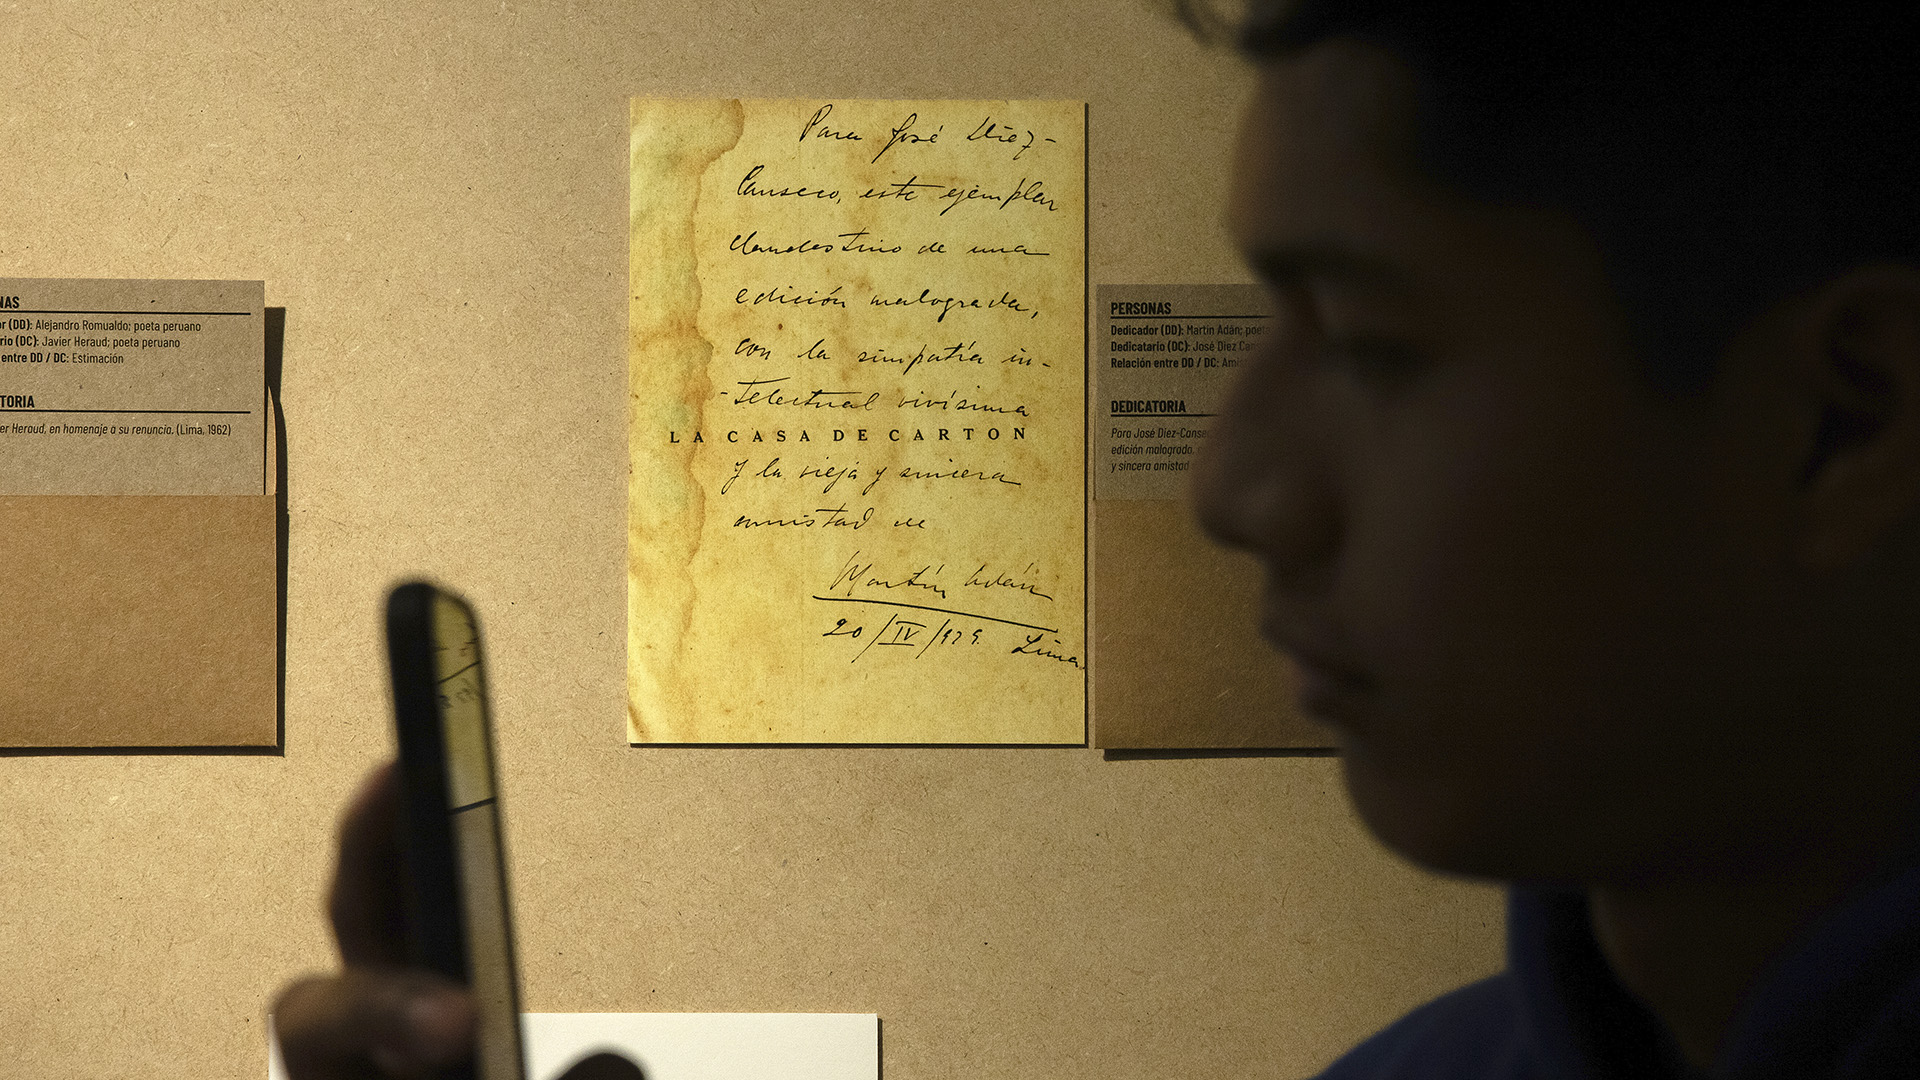 NAS
or (DD): Alejandro Romualdo; poeta peruano
rio (DC): Javier Heraud; poeta peruano
entre DD / DC: Estimación
TORIA
er Heraud, en homenaje a su renuncia. (Lima, 1962)
Para José Diez-
Canseco, este ejemplar
clandestino de una
edición malograda,
con la simpatía in-
-telectual vivísima
LA CASA DE CARTON
y la vieja y sincera
amistad de
Martín Adán
20/IV/929. Lima
PERSONAS
Dedicador (DD): Martín Adán; poe
Dedicatario (DC): José Diez Can
Relación entre DD / DC: Ami
DEDICATORIA
Para José Diez-Canse
edición malograda,
y sincera amistad